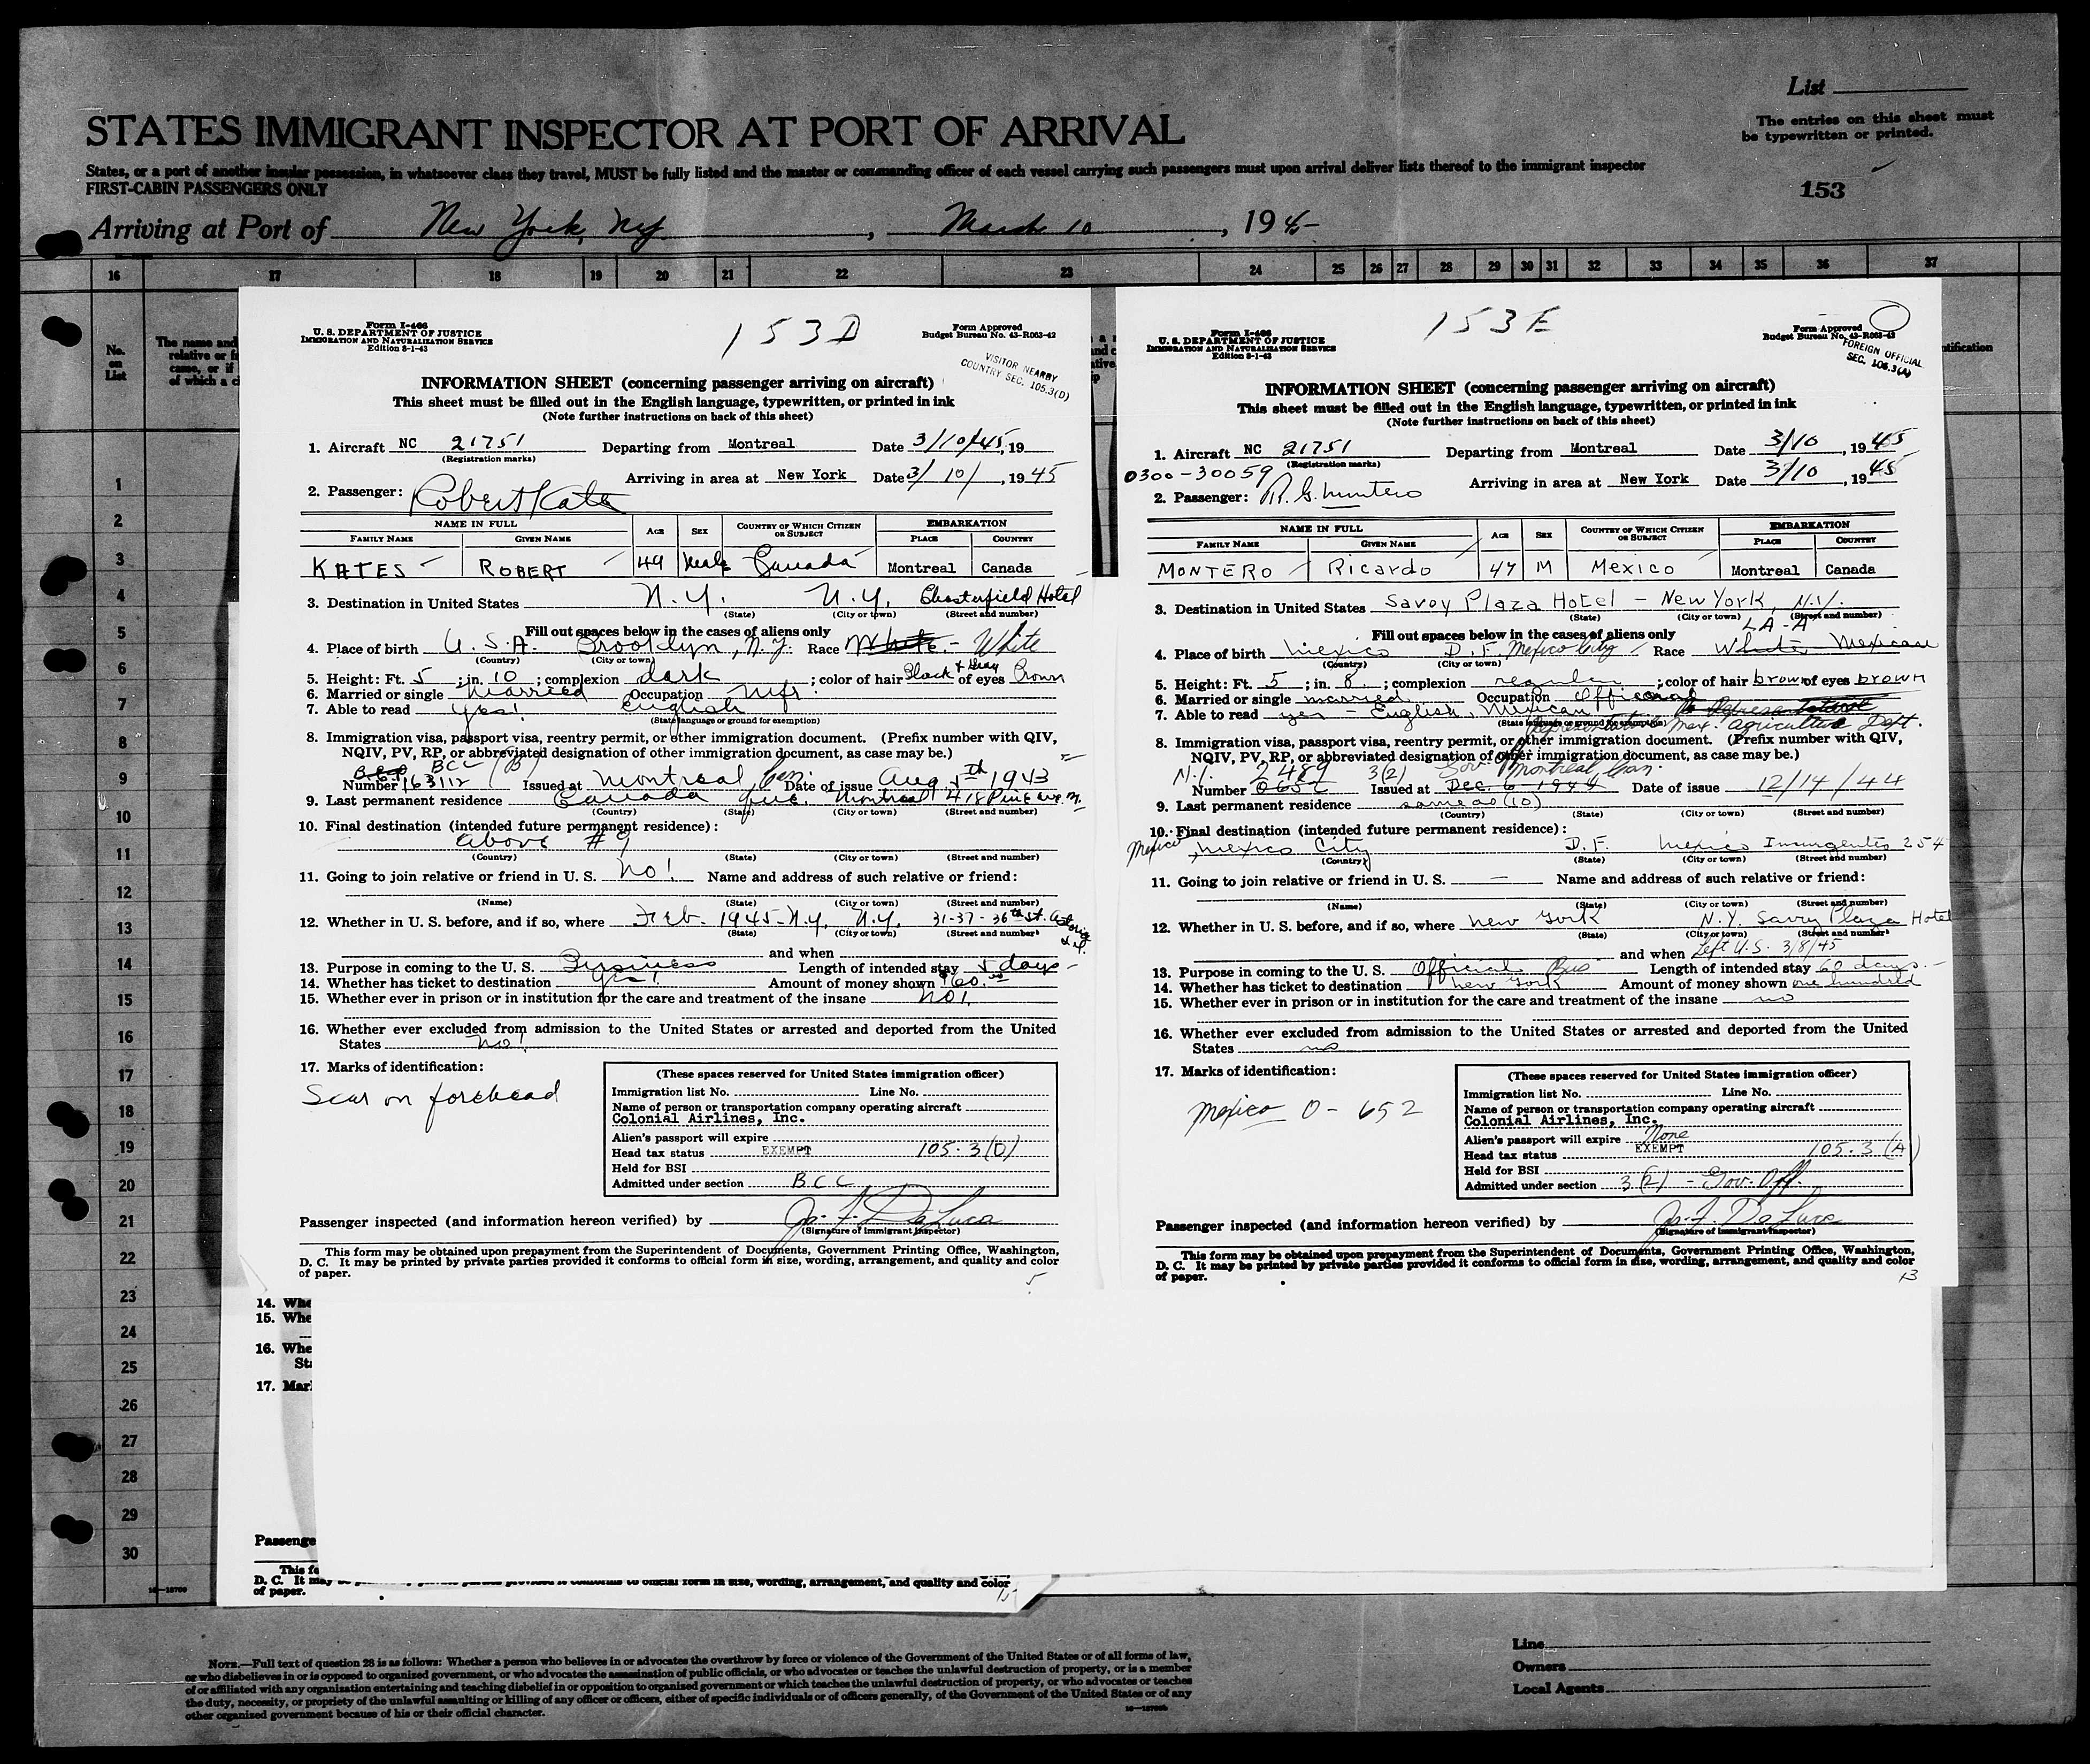 List
STATES IMMIGRANT INSPECTOR AT PORT OF ARRIVAL
The entries on this sheet must
be typewritten or printed.
States, or a port of another insular possession, in whatsoever class they travel, MUST be fully listed and the master or commanding officer of each vessel carrying such passengers must upon arrival deliver lists thereof to the immigrant inspector
FIRST-CABIN PASSENGERS ONLY
153
Arriving at Port of New York, NY , March 10 , 1945
16 17 18 19 20 21 22 23 24 25 26 27 28 29 30 31 32 33 34 35 36 37
No. on List
The name and
relative or fr
came, or if
of which a c
1
2
3
4
5
6
7
8
9
10
11
12
13
14
15
16
17
18
19
20
21
22
23
24
25
26
27
28
29
30
Form I-466
U. S. DEPARTMENT OF JUSTICE
IMMIGRATION AND NATURALIZATION SERVICE
Edition 8-1-43
153D
Form Approved
Budget Bureau No. 43-R063-42
VISITOR NEARBY
COUNTRY SEC. 105.3(D)
INFORMATION SHEET (concerning passenger arriving on aircraft)
This sheet must be filled out in the English language, typewritten, or printed in ink
(Note further instructions on back of this sheet)
1. Aircraft NC 21751 Departing from Montreal Date 3/10/45, 19
(Registration marks)
Arriving in area at New York Date 3/10/, 1945
2. Passenger: Robert Kates
NAME IN FULL AGE SEX COUNTRY OF WHICH CITIZEN OR SUBJECT EMBARKATION
FAMILY NAME GIVEN NAME PLACE COUNTRY
KATES ROBERT 49 Male Canada Montreal Canada
3. Destination in United States N.Y. N.Y. Chesterfield Hotel
(State) (City or town) (Street and number)
Fill out spaces below in the cases of aliens only
4. Place of birth U.S.A. Brooklyn, N.Y. Race White - White
(Country) (City or town)
5. Height: Ft. 5 ; in. 10 ; complexion dark ; color of hair Black & Gray of eyes Brown
6. Married or single Married Occupation Mfr.
7. Able to read Yes! English
(State language or ground for exemption)
8. Immigration visa, passport visa, reentry permit, or other immigration document. (Prefix number with QIV,
NQIV, PV, RP, or abbreviated designation of other immigration document, as case may be.)
BCC
Number 163112 Issued at Montreal Can. Date of issue Aug 1943
9. Last permanent residence Canada Que. Montreal 418 Pine Ave.
(Country) (State) (City or town) (Street and number)
10. Final destination (intended future permanent residence):
above # 9
(Country) (State) (City or town) (Street and number)
11. Going to join relative or friend in U. S. No! Name and address of such relative or friend:
(Name) (State) (City or town) (Street and number)
12. Whether in U. S. before, and if so, where Feb. 1945 - N.Y. N.Y. 31-37 - 36th St.
(State) (City or town) (Street and number)
and when
13. Purpose in coming to the U. S. Business Length of intended stay days
14. Whether has ticket to destination Yes! Amount of money shown $60.00
15. Whether ever in prison or in institution for the care and treatment of the insane NO!
16. Whether ever excluded from admission to the United States or arrested and deported from the United
States No!
17. Marks of identification:
Scar on forehead
(These spaces reserved for United States immigration officer)
Immigration list No. Line No.
Name of person or transportation company operating aircraft
Colonial Airlines, Inc.
Alien's passport will expire
Head tax status EXEMPT 105.3(D)
Held for BSI
Admitted under section BCC
Passenger inspected (and information hereon verified) by Jo. F. DeLuca
(Signature of immigrant inspector)
This form may be obtained upon prepayment from the Superintendent of Documents, Government Printing Office, Washington,
D. C. It may be printed by private parties provided it conforms to official form in size, wording, arrangement, and quality and color
of paper.
5
Form I-466
U. S. DEPARTMENT OF JUSTICE
IMMIGRATION AND NATURALIZATION SERVICE
Edition 8-1-43
153E
Form Approved
Budget Bureau No. 43-R063-42
FOREIGN OFFICIAL
SEC. 105.3(A)
INFORMATION SHEET (concerning passenger arriving on aircraft)
This sheet must be filled out in the English language, typewritten, or printed in ink
(Note further instructions on back of this sheet)
1. Aircraft NC 21751 Departing from Montreal Date 3/10 1945
(Registration marks)
0300-30059 Arriving in area at New York Date 3/10, 1945
2. Passenger: R. G. Montero
NAME IN FULL AGE SEX COUNTRY OF WHICH CITIZEN OR SUBJECT EMBARKATION
FAMILY NAME GIVEN NAME PLACE COUNTRY
MONTERO Ricardo 47 M Mexico Montreal Canada
3. Destination in United States Savoy Plaza Hotel - New York, N.Y.
(State) (City or town) (Street and number)
LA-A
Fill out spaces below in the cases of aliens only
4. Place of birth Mexico D.F. Mexico City Race White Mexican
(Country) (City or town)
5. Height: Ft. 5 ; in. 8 ; complexion regular ; color of hair brown of eyes brown
6. Married or single married Occupation Official
7. Able to read yes - English, Mexican Representative Mex. Agriculture Dept.
(State language or ground for exemption)
8. Immigration visa, passport visa, reentry permit, or other immigration document. (Prefix number with QIV,
NQIV, PV, RP, or abbreviated designation of other immigration document, as case may be.)
2489 3(2) Gov. Off. Montreal Can.
Number 0652 Issued at Dec. 6 - 1944 Date of issue 12/14/44
9. Last permanent residence same as (10)
(Country) (State) (City or town) (Street and number)
10. Final destination (intended future permanent residence):
Mexico, Mexico City D.F. Mexico Insurgentes 254
(Country) (State) (City or town) (Street and number)
11. Going to join relative or friend in U. S. — Name and address of such relative or friend:
(Name) (State) (City or town) (Street and number)
12. Whether in U. S. before, and if so, where New York N.Y. Savoy Plaza Hotel
(State) (City or town) (Street and number)
and when Left U.S. 3/8/45
13. Purpose in coming to the U. S. Official Bus Length of intended stay 60 days
14. Whether has ticket to destination New York Amount of money shown one hundred
15. Whether ever in prison or in institution for the care and treatment of the insane no
16. Whether ever excluded from admission to the United States or arrested and deported from the United
States no
17. Marks of identification:
Mexico O-652
(These spaces reserved for United States immigration officer)
Immigration list No. Line No.
Name of person or transportation company operating aircraft
Colonial Airlines, Inc.
Alien's passport will expire None
Head tax status EXEMPT 105.3(A)
Held for BSI
Admitted under section 3(2) - Gov. Off.
Passenger inspected (and information hereon verified) by Jo. F. DeLuca
(Signature of immigrant inspector)
This form may be obtained upon prepayment from the Superintendent of Documents, Government Printing Office, Washington,
D. C. It may be printed by private parties provided it conforms to official form in size, wording, arrangement, and quality and color
of paper.
13
14. Whe
15. Whe
16. Whe
Sta
17. Mar
Passenge
This fo
D. C. It may official form in size, wording, arrangement, and quality and color
of paper.
NOTE.—Full text of question 28 is as follows: Whether a person who believes in or advocates the overthrow by force or violence of the Government of the United States or of all forms of law,
or who disbelieves in or is opposed to organized government, or who advocates the assassination of public officials, or who advocates or teaches the unlawful destruction of property, or is a member
of or affiliated with any organization entertaining and teaching disbelief in or opposition to organized government or which teaches the unlawful destruction of property, or who advocates or teaches
the duty, necessity, or propriety of the unlawful assaulting or killing of any officer or officers, either of specific individuals or of officers generally, of the Government of the United States or of any
other organized government because of his or their official character.
Line
Owners
Local Agents